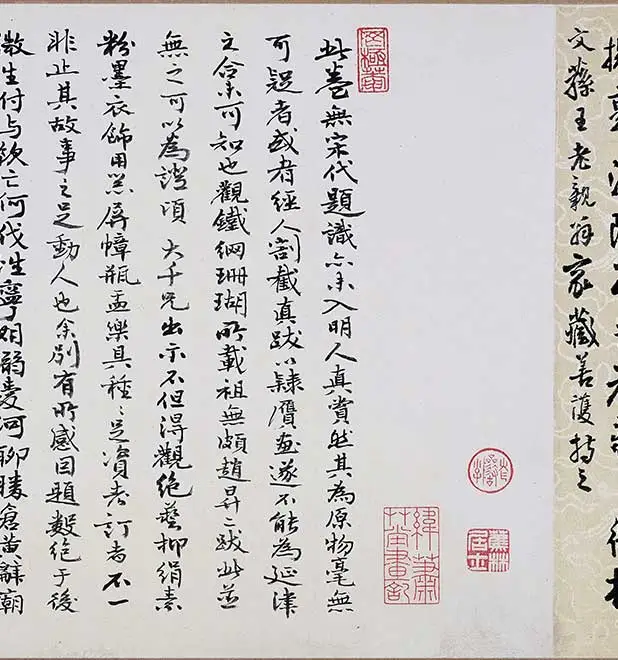 家藏善護持之
此卷無宋代題識亦未入明人真賞然其為原物毫無
可疑者或者經人割截真跋以隸贋畫遂不能為延津
之合未可知也觀鐵網珊瑚所載祖無頗趙昇二跋此並
無之可以為證頃大千兄出示不但得觀絕藝抑絹素
粉墨衣飾用器屏幛瓶盂樂具種〻足資考訂者不一
非止其故事之足動人也余別有所感因題數絕于後
微生付与欲亡何伐性寧明溺愛河聊勝倉黃辭廟